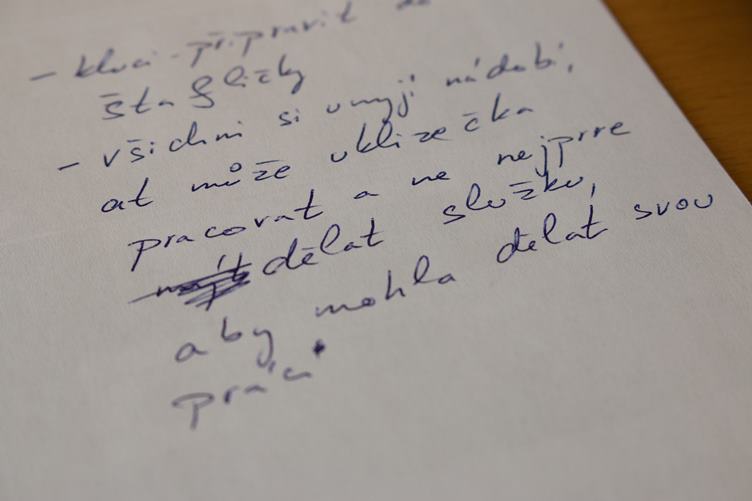 - kluci připravit
štafličky
- všichni si umyjí nádobí,
ať může uklízečka
pracovat a ne nejprve
dělat služku,
aby mohla dělat svou
práci